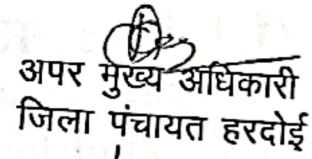 अपर मुख्य अधिकारी
जिला पंचायत हरदोई